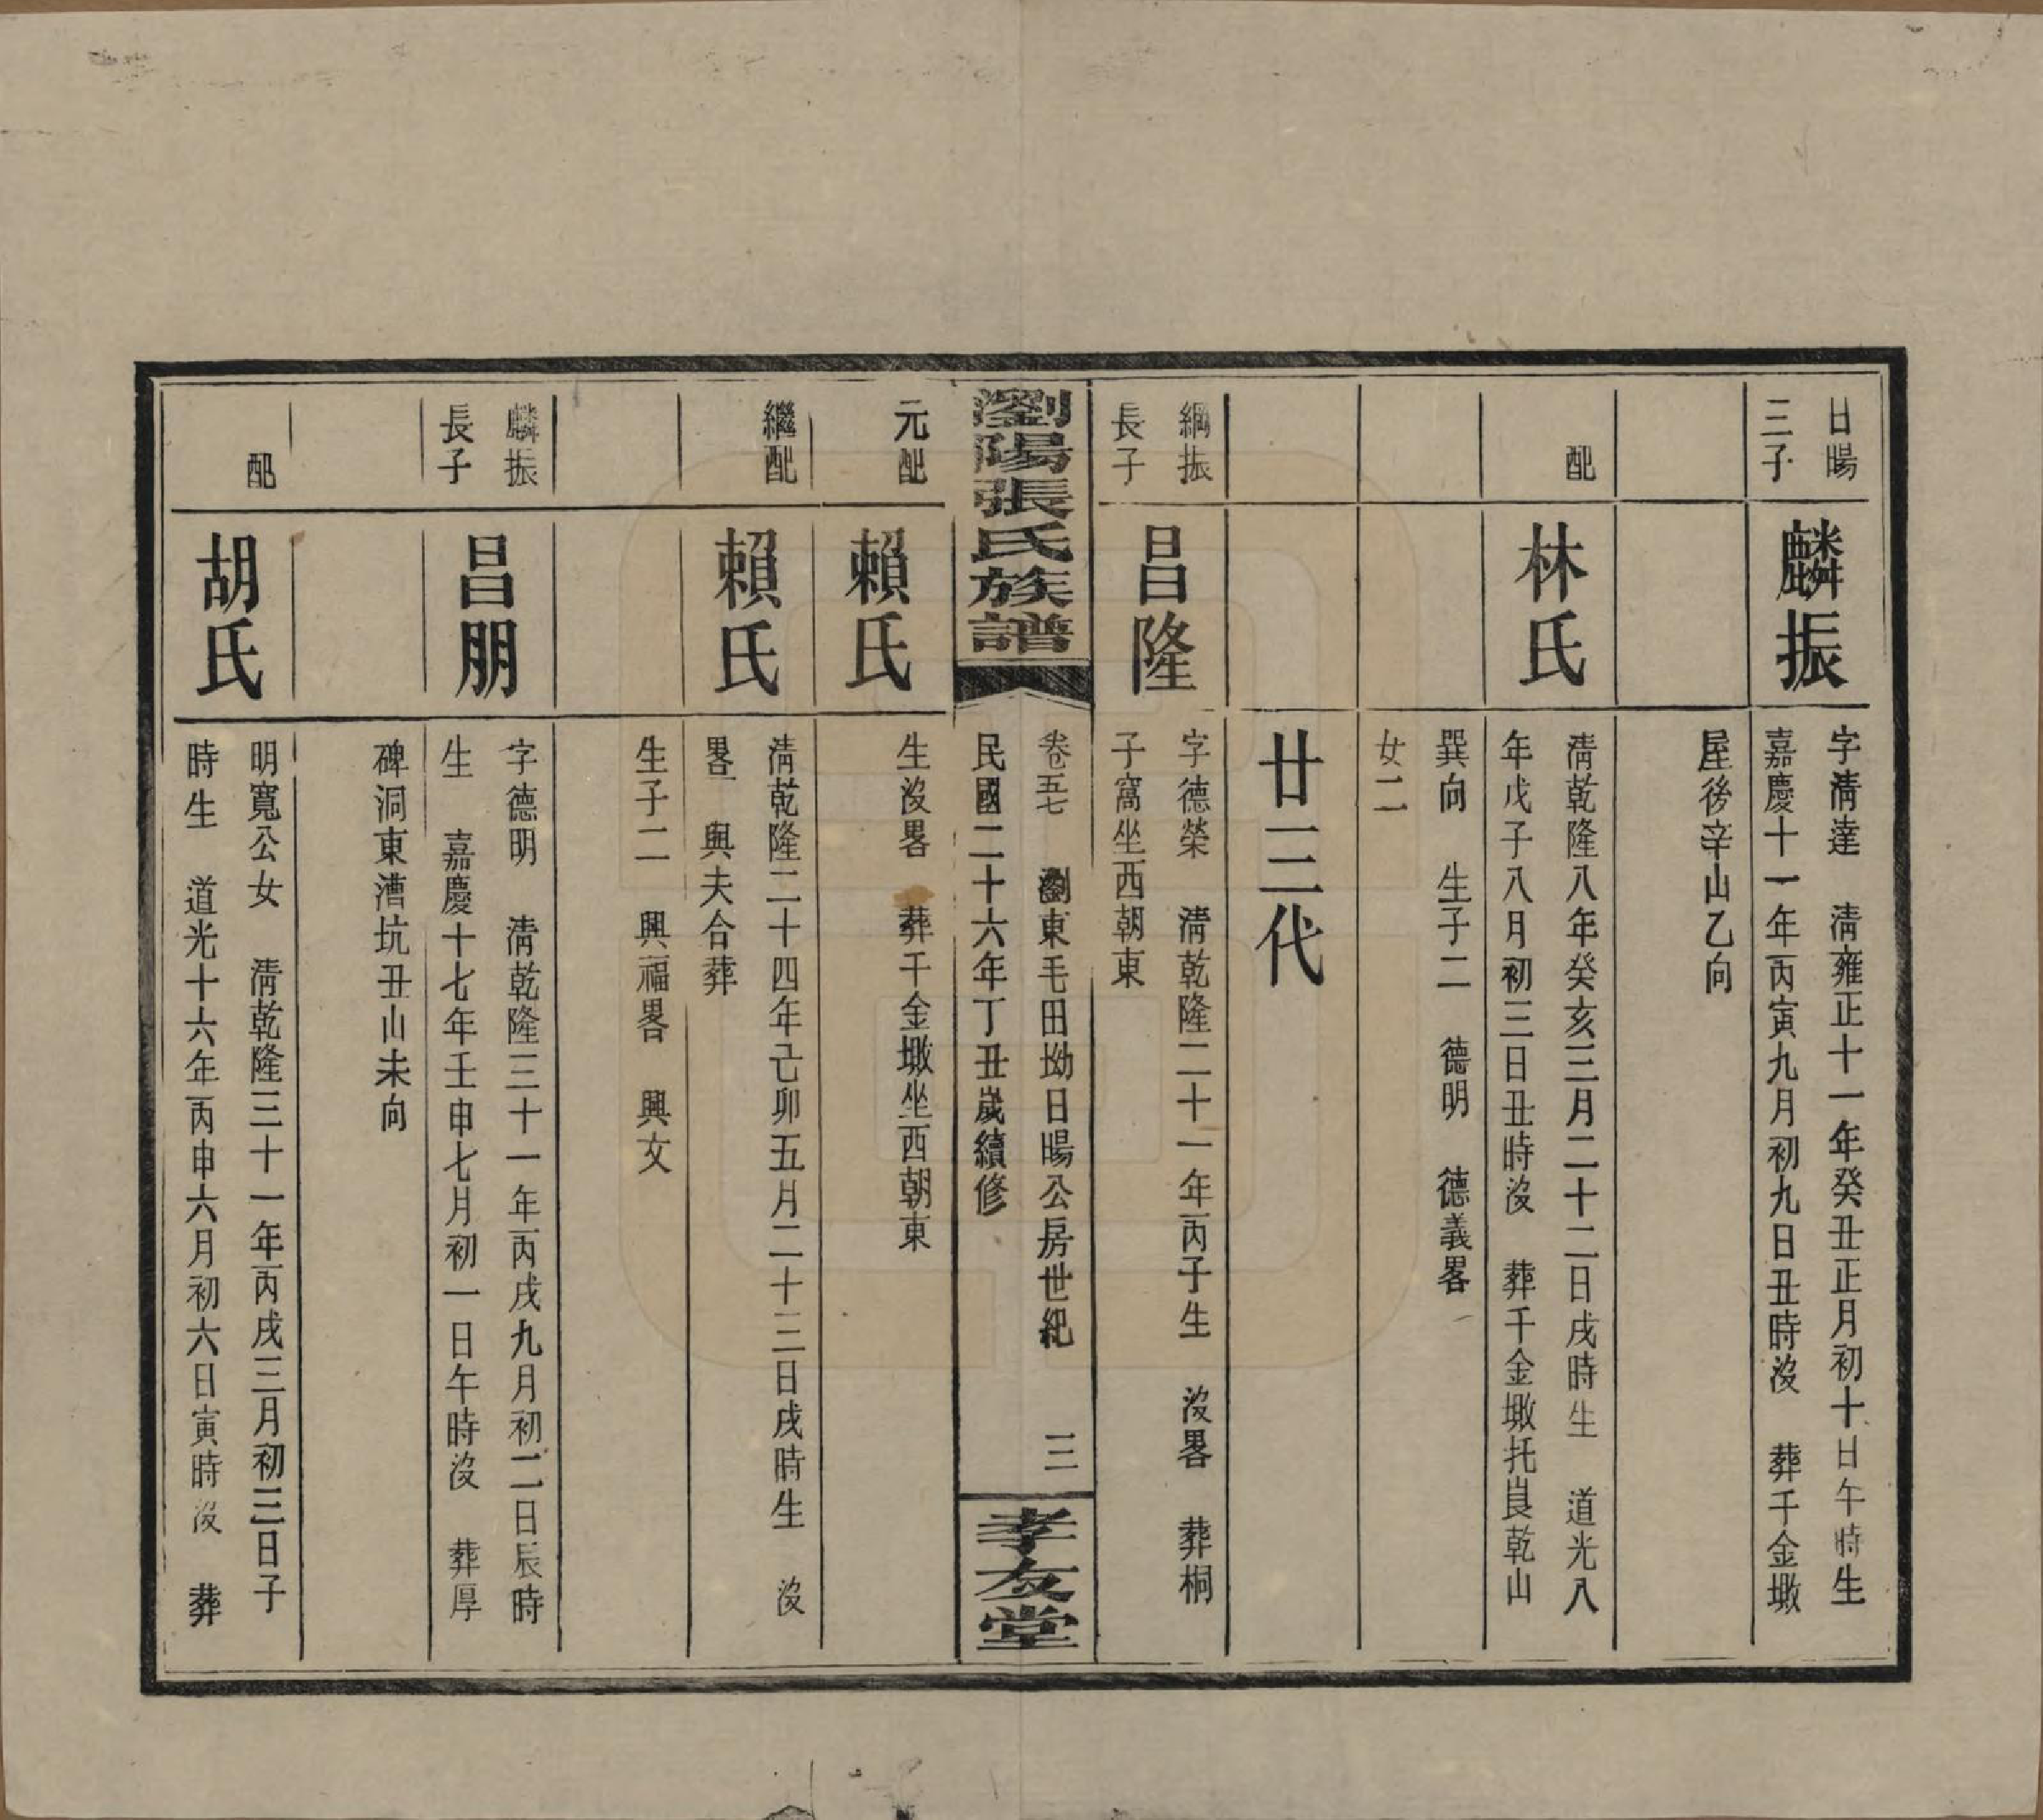 日暘
三子
麟振
字清達　清雍正十一年癸丑正月初十日午時生
嘉慶十一年丙寅九月初九日丑時沒　葬千金墩
屋後辛山乙向
配
林氏
清乾隆八年癸亥三月二十二日戌時生　道光八
年戊子八月初三日丑時沒　葬千金墩托艮乾山
巽向　生子二　德明　德義畧
女二
廿三代
綱振
長子
昌隆
字德榮　清乾隆二十一年丙子生　沒畧　葬桐
子窩坐西朝東
瀏陽張氏族譜
卷五七　瀏東毛田坳日暘公房世紀　三
民國二十六年丁丑歲續修
孝友堂
元配
賴氏
生沒畧　葬千金墩坐西朝東
繼配
賴氏
清乾隆二十四年己卯五月二十三日戌時生　沒
畧　與夫合葬
生子二　興福畧　興文
麟振
長子
昌朋
字德明　清乾隆三十一年丙戌九月初二日辰時
生　嘉慶十七年壬申七月初一日午時沒　葬厚
碑洞東漕坑丑山未向
配
胡氏
明寬公女　清乾隆三十一年丙戌三月初三日子
時生　道光十六年丙申六月初六日寅時沒　葬